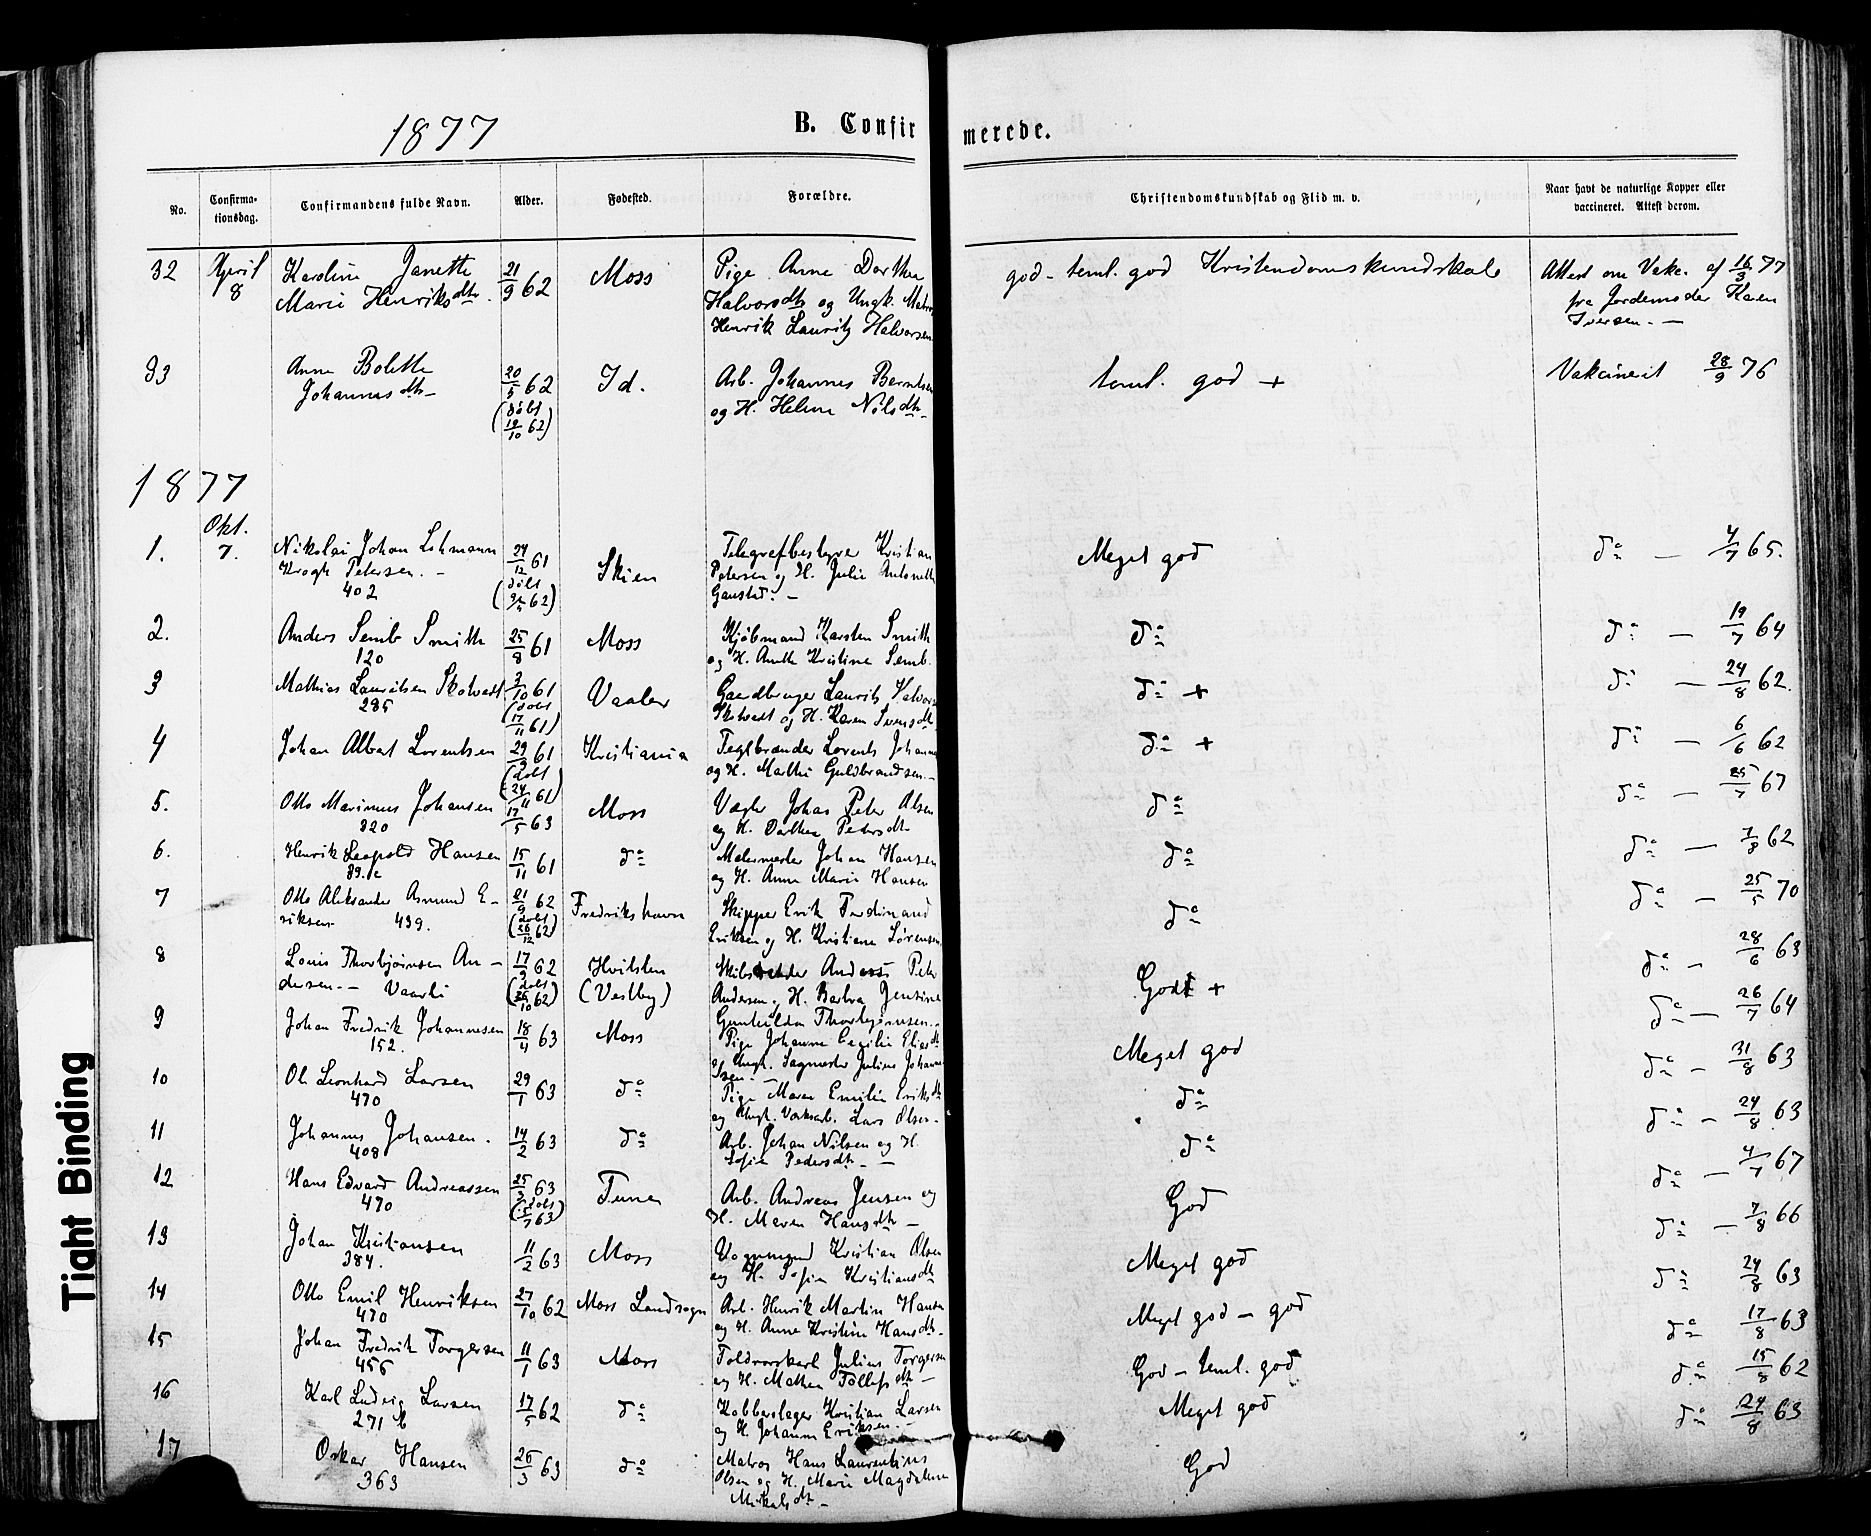 1877
B. Confirmerede.
No. Confirmationsdag. Confirmandens fulde Navn. Alder. Fødested. Forældre. Christendomskundskab og Flid m. v. Naar havt de naturlige Kopper eller vaccineret. Attest derom.
32 April 8 Karoline Janette 21/9 62 Moss Pige Anne Dorthea god - teml. god Kristendomskundskab Attest om Vakc. af 16/3 77
Marie Henriksdtr. Halvorsdtr og Ungk. fra Jordemoder Karen
Henrik Lauritz Halvorsen Iversen. —
33 Anne Bolette 20/5 62 Id. Arb. Johannes Berntsen teml. god + Vakcineret 28/9 76
Johannesdtr — (døbt 19/10 62) og H. Helene Nilsdtr —
1877
1. Okt. 7. Nikolai Johan Lehmann 24/12 61 Skien Telegrafbestyrer Kristian Meget god do — 4/7 65.
Krogh Petersen. — (døbt 62) Petersen og H. Julie Antonette
402 Gaustad. —
2. Anders Semb Smith 25/8 61 Moss Kjøbmand Karsten Smith do do — 19/7 64
120 og H. Anette Kristine Semb.
3 Mathias Lauritsen Skotvedt 3/10 61 Vaaler Gaardbruger Laurits do + do — 24/8 62.
285 (døbt 17/11 61) Skotvedt og H. Karen Svensdtr
4 Johan Albert Lorentsen 29/9 61 Kristiania Teglbrænder Lorents do + do — 6/6 62
(døbt 24/11 61) og H. Marthe Guldbrandsen. —
5. Otto Marinus Johansen 17/5 63 Moss Vægter Johan Peter Olsen do do — 25/7 67
320 og H. Dorthea Pedersdtr
6. Henrik Leopold Hansen 15/11 61 do Malermester Johan Hansen do do — 7/8 62
89.c og H. Anne Marie Hansen
7 Otto Aleksander Asmund E- 21/9 62 Fredrikshavn Skipper Erik Ferdinand do do — 25/5 70
riksen 439. (døbt 26/12 62) Eriksen og H. Kristiane Sørensen
8 Louis Thorbjørnsen An — 17/9 62 Hvitsten Anders Peter Godt + do — 28/6 63
dersen. — (døbt 26/10 62) (Vestby) Andersen og H. Barbra Jensine
Gunhilda Thorbjørnsen. —
9 Johan Fredrik Johannesen 18/4 63 Moss Pige Johanne Cecilie Eliasdtr Meget god do — 26/7 64
152. og Ungk. Sagmester Julius
10 Ole Leonhard Larsen 29/1 63 do Pige Maren Emilie Eriksdtr do do — 31/8 63
470 og Ungk. Værksarb. Lars Olsen —
11 Johannes Johansen. 14/2 63 do Arb. Johan Nilsen og H. do do — 24/8 63
408 Sofie Pedersdtr. —
12 Hans Edvard Andreassen 25/3 63 Tune Arb. Andreas Jensen og God do — 4/7 67
470 (døbt 63) H. Maren Hansdtr —
13 Johan Kristiansen 11/2 63 Moss Vognmand Kristian Olsen Meget god do — 7/8 66
384. og H. Sofie Kristiansdtr
14 Otto Emil Henriksen 27/10 62 Moss Landsogn Arb. Henrik Martin Hansen Meget god — god do 24/8 63
470 og H. Anne Kristine Hansdtr —
15 Johan Fredrik Torgersen 11/1 63 Moss Toldrorskarl Julius Torgersen God — teml. god do 17/8 63
456 og H. Mathea Tollefsdtr —
16 Karl Ludvig Larsen 17/5 62 do Kobberslager Kristian Larsen Meget god do 15/8 62
271 b og H. Johanne Eriksen. —
17 Oskar Hansen 26/3 63 do Matros Hans Laurentius God do 24/8 63
363 Olsen og H. Marie Magdalene
Mikalsdtr —
Tight Binding